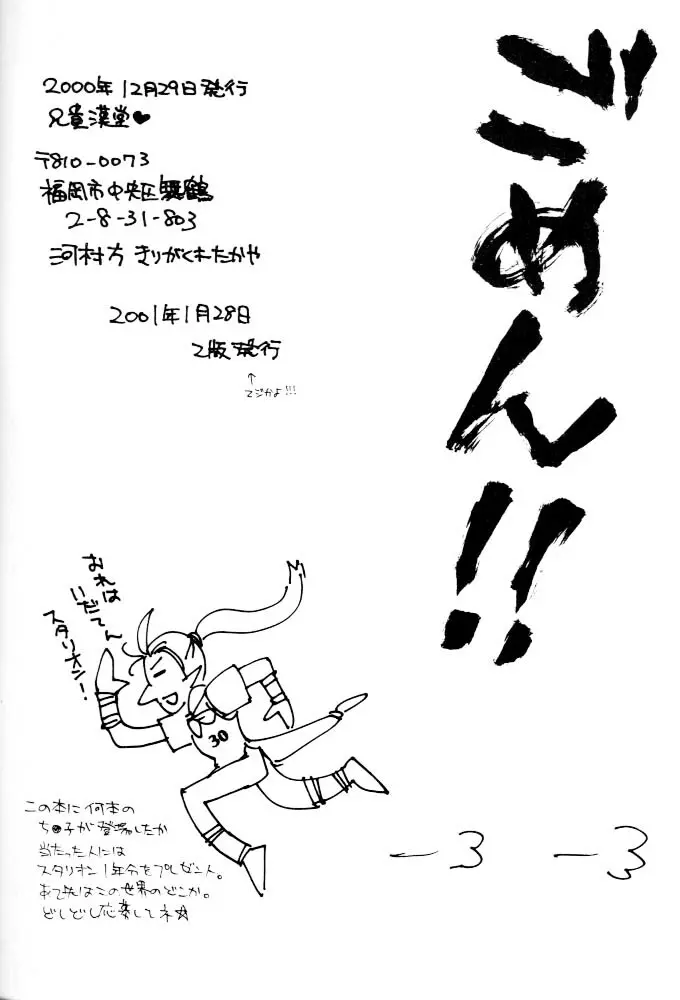 ごめん!!
2000年12月29日発行
兄貴漢堂♥
〒810-0073
福岡市中央区舞鶴
2-8-31-803
河村方 きりがくれたかや
2001年1月28日
2版発行
↑
マジかよ!!!
おれは
いだてん
スタリオン!
30
この本に何本の
ち●子が登場したか
当たった人には
スタリオン1年分をプレゼント。
あて先はこの世界のどこか。
どしどし応募してネ☆